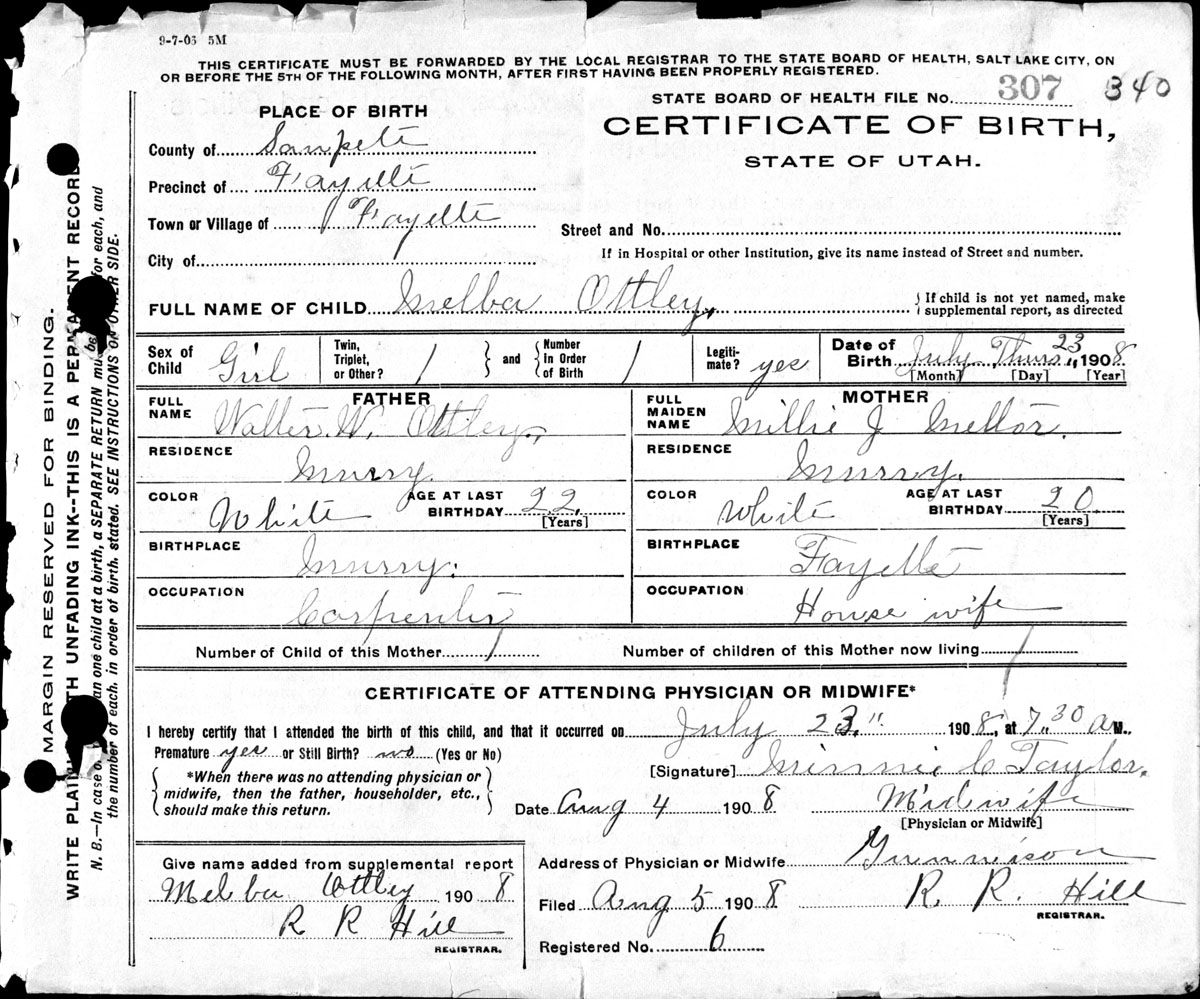 9-7-06 5M
THIS CERTIFICATE MUST BE FORWARDED BY THE LOCAL REGISTRAR TO THE STATE BOARD OF HEALTH, SALT LAKE CITY, ON
OR BEFORE THE 5TH OF THE FOLLOWING MONTH, AFTER FIRST HAVING BEEN PROPERLY REGISTERED.
STATE BOARD OF HEALTH FILE No. 307 340
CERTIFICATE OF BIRTH,
STATE OF UTAH.
PLACE OF BIRTH
County of Sanpete
Precinct of Fayette
Town or Village of Fayette
Street and No.
If in Hospital or other Institution, give its name instead of Street and number.
City of
FULL NAME OF CHILD Melba Ottley,
If child is not yet named, make
supplemental report, as directed
Sex of Child Girl
Twin, Triplet, or Other? 1 and Number In Order of Birth 1
Legiti-mate? yes
Date of Birth July Thurs 23 1908.
[Month] [Day] [Year]
FATHER
FULL NAME Walter W. Ottley,
RESIDENCE Murry.
COLOR White AGE AT LAST BIRTHDAY 22. [Years]
BIRTHPLACE Murry.
OCCUPATION Carpenter
MOTHER
FULL MAIDEN NAME Millie J Mellor.
RESIDENCE Murry.
COLOR White AGE AT LAST BIRTHDAY 20 [Years]
BIRTHPLACE Fayette
OCCUPATION House wife
Number of Child of this Mother 1 Number of children of this Mother now living 1
CERTIFICATE OF ATTENDING PHYSICIAN OR MIDWIFE*
I hereby certify that I attended the birth of this child, and that it occurred on July 23" 1908, at 7.30 a M.,
Premature yes or Still Birth? no (Yes or No)
*When there was no attending physician or
midwife, then the father, householder, etc.,
should make this return.
[Signature] Minnie C Taylor.
Date Aug 4 1908 Midwife
[Physician or Midwife]
Give name added from supplemental report
Melba Ottley 1908
R R Hill
REGISTRAR.
Address of Physician or Midwife Gunnison
Filed Aug 5 1908 R. R. Hill
REGISTRAR.
Registered No. 6
MARGIN RESERVED FOR BINDING.
WRITE PLAINLY WITH UNFADING INK--THIS IS A PERMANENT RECORD
N. B.—In case of more than one child at a birth, a SEPARATE RETURN must be made for each, and
the number of each, in order of birth, stated. SEE INSTRUCTIONS ON OTHER SIDE.